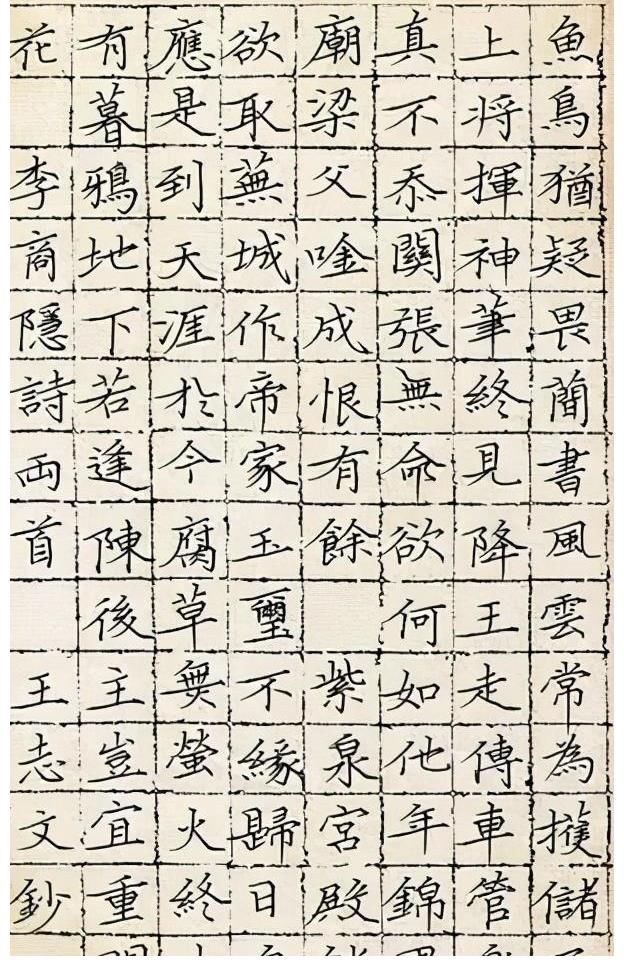 魚鳥猶疑畏簡書風雲常為擁儲
上將揮神筆終見降王走傳車管
真不忝關張無命欲何如他年錦
廟梁父唫成恨有餘 紫泉宮殿
欲取蕪城作帝家玉璽不緣歸日
應是到天涯於今腐草無螢火終
有暮鴉地下若逢陳後主豈宜重
花 李商隱詩兩首 王志文鈔